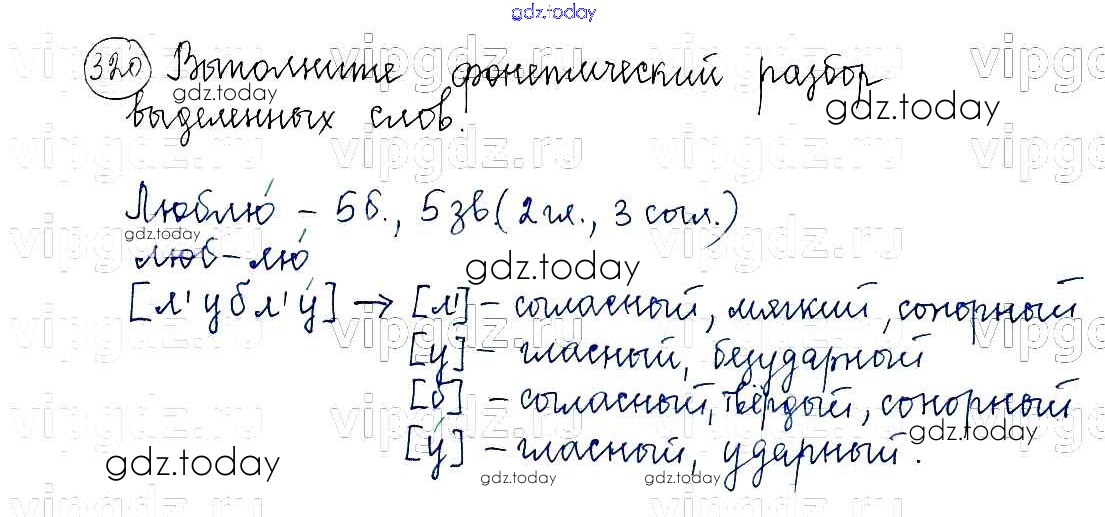 gdz.today
320 Выполните фонетический разбор
gdz.today
выделенных слов.
gdz.today
vipgdz.ru vipgdz.ru vipgdz.ru vipgdz.ru
Люблю́ – 5б., 5зв.(2гл., 3 согл.)
gdz.today
люб-лю́
gdz.today
[л'убл'у́] → [л'] – согласный, мягкий, сонорный
[у] – гласный, безударный
[б] – согласный, твёрдый, сонорный
[у́] – гласный, ударный.
gdz.today
gdz.today gdz.today gdz.today